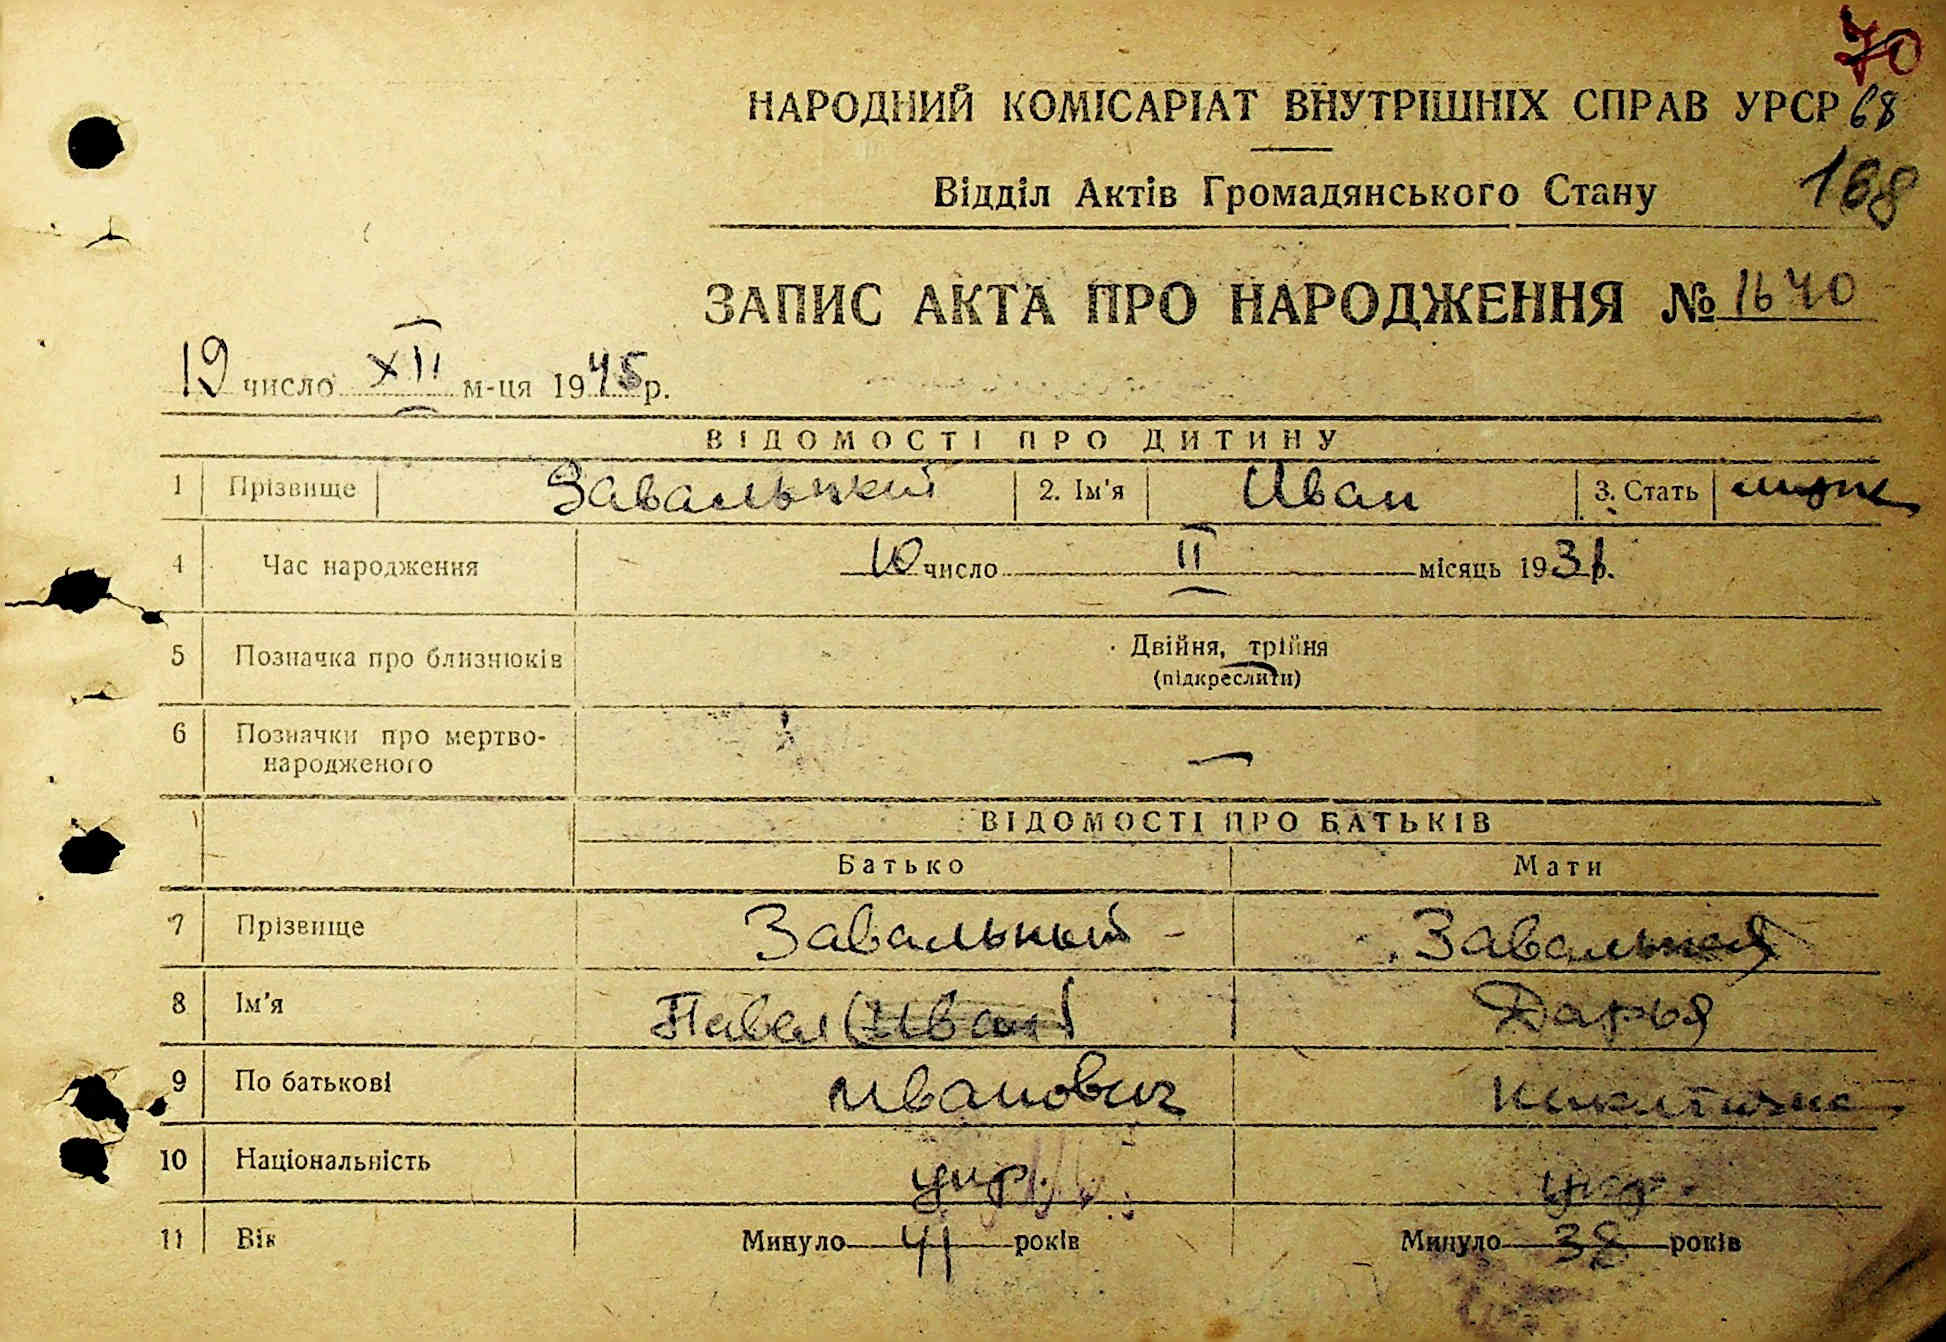 70
НАРОДНИЙ КОМІСАРІАТ ВНУТРІШНІХ СПРАВ УРСР 68
Відділ Актів Громадянського Стану 168
ЗАПИС АКТА ПРО НАРОДЖЕННЯ № 1640
19 число XII м-ця 1945 р.
ВІДОМОСТІ ПРО ДИТИНУ
1 Прізвище Завальный 2. Ім'я Иван 3. Стать муж
4 Час народження 10 число II місяць 1931 р.
5 Позначка про близнюків Двійня, трійня
(підкреслити)
6 Позначки про мертво-
народженого —
ВІДОМОСТІ ПРО БАТЬКІВ
Батько Мати
7 Прізвище Завальный Завальная
8 Ім'я Павел (Иван) Дарья
9 По батькові Иванович Никитична
10 Національність укр. укр.
11 Вік Минуло 41 років Минуло 38 років